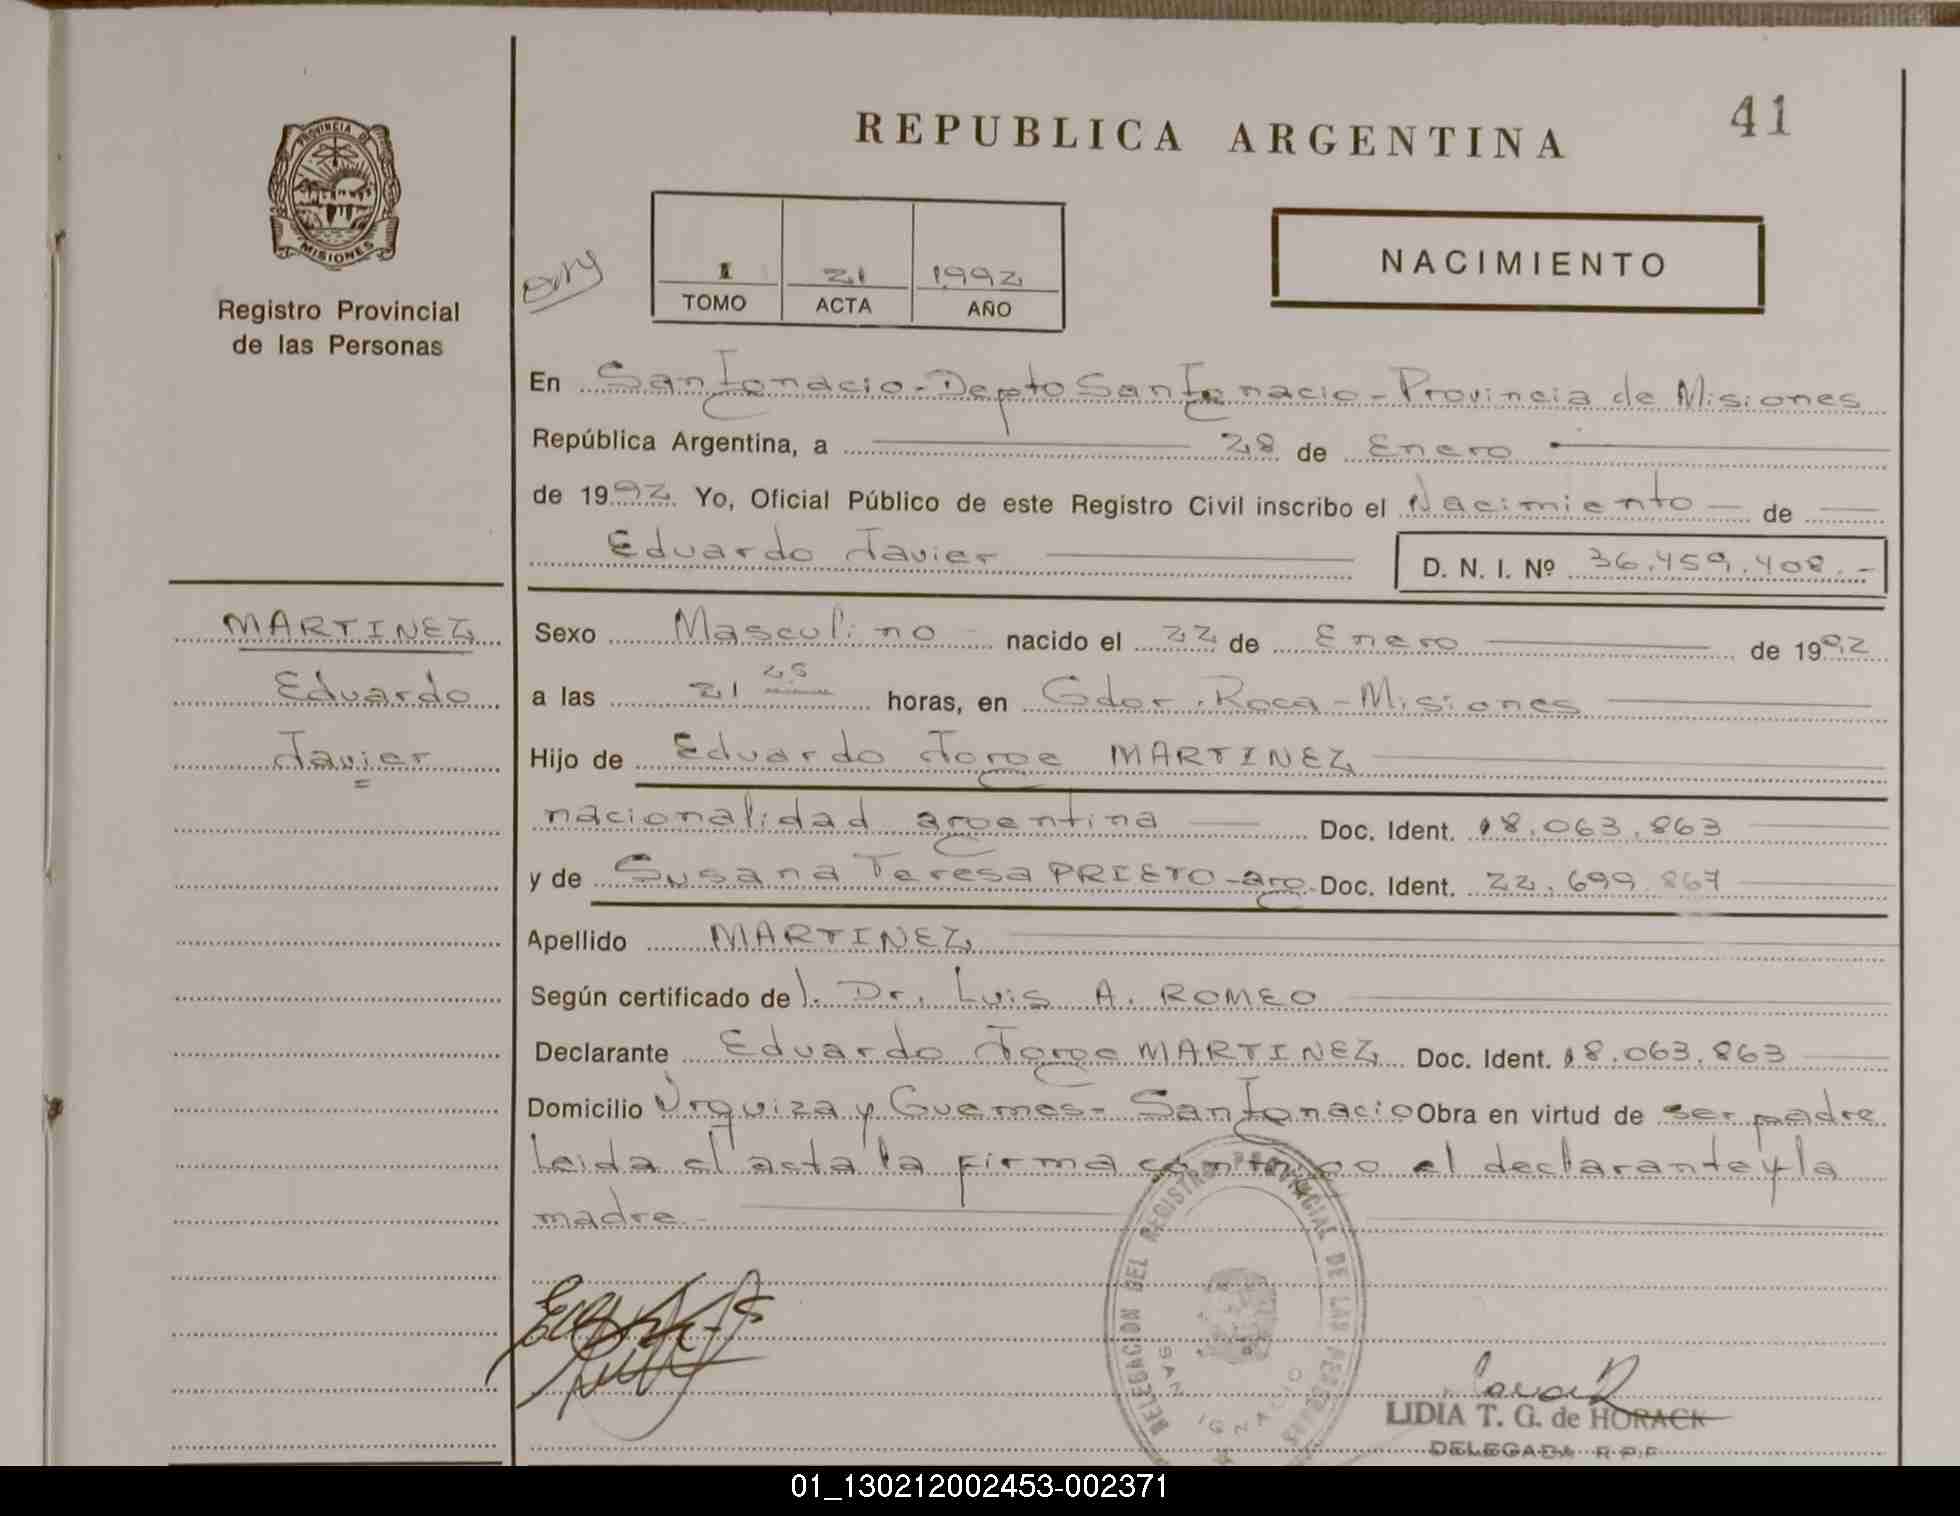 41
REPUBLICA ARGENTINA
PROVINCIA DE
MISIONES
Registro Provincial
de las Personas
NACIMIENTO
1 21 1992
TOMO ACTA AÑO
En San Ignacio - Depto San Ignacio - Provincia de Misiones
República Argentina, a 28 de Enero
de 1992 Yo, Oficial Público de este Registro Civil inscribo el Nacimiento de
Eduardo Javier D. N. I. Nº 36.459.408.-
MARTINEZ
Eduardo
Javier
Sexo Masculino nacido el 22 de Enero de 1992
a las 21 25 horas, en Gdor. Roca - Misiones
Hijo de Eduardo Jorge MARTINEZ
nacionalidad argentina Doc. Ident. 18.063.863
y de Susana Teresa PRIETO - arg. Doc. Ident. 22.699.867
Apellido MARTINEZ
Según certificado del. Dr. Luis A. ROMEO
Declarante Eduardo Jorge MARTINEZ Doc. Ident. 18.063.863
Domicilio Urquiza y Guemes - San Ignacio Obra en virtud de ser padre
Leida el acta la firma conmigo el declarante y la
madre.-
DELEGACION DEL REGISTRO PROVINCIAL DE LAS PERSONAS
SAN IGNACIO
LIDIA T. G. de HORACK
DELEGADA R.P.P.
01_130212002453-002371